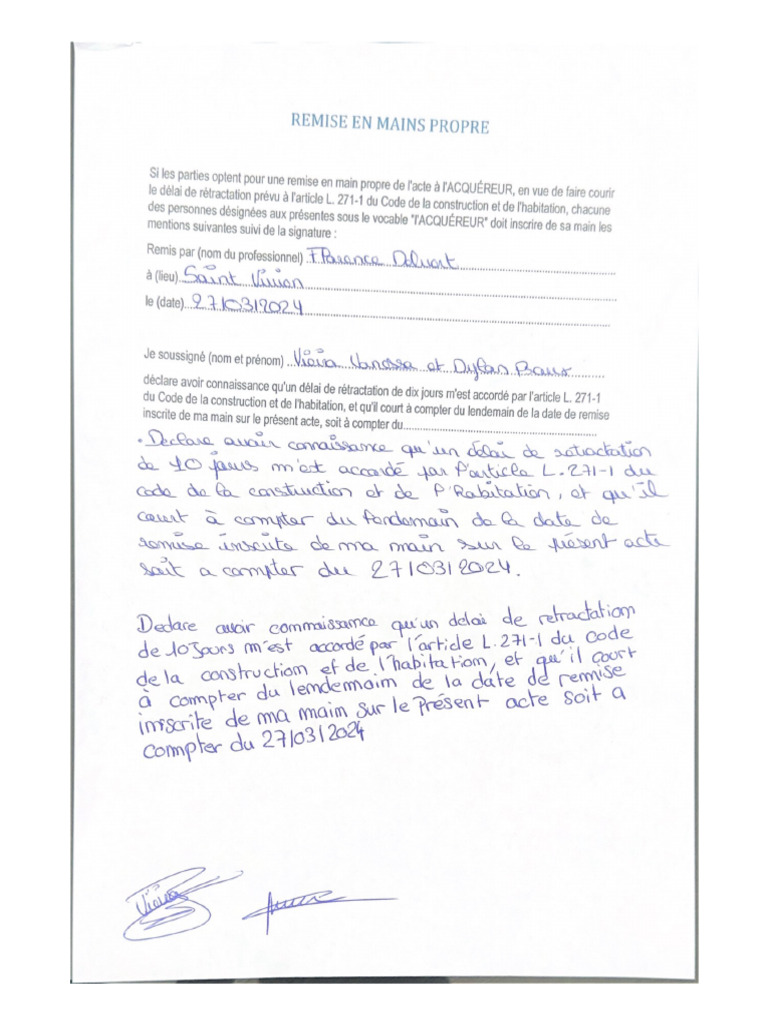 REMISE EN MAINS PROPRE
Si les parties optent pour une remise en main propre de l'acte à l'ACQUÉREUR, en vue de faire courir
le délai de rétractation prévu à l'article L. 271-1 du Code de la construction et de l'habitation, chacune
des personnes désignées aux présentes sous le vocable "l'ACQUÉREUR" doit inscrire de sa main les
mentions suivantes suivi de la signature :
Remis par (nom du professionnel) Florence
à (lieu) Saint Vivien
le (date) 27/03/2024
Je soussigné (nom et prénom) Vieira Vanessa et Dylan
déclare avoir connaissance qu'un délai de rétractation de dix jours m'est accordé par l'article L. 271-1
du Code de la construction et de l'habitation, et qu'il court à compter du lendemain de la date de remise
inscrite de ma main sur le présent acte, soit à compter du
. Declare avoir connaissance qu'un délai de retractation
de 10 jours m'est accordé par l'article L.271-1 du
code de la construction et de l'habitation, et qu'il
court à compter du lendemain de la date de
remise inscrite de ma main sur le présent acte
soit a compter du 27/03/2024.
Declare avoir connaissance qu'un delai de retractation
de 10 Jours m'est accordé par l'article L.271-1 du code
de la construction et de l'habitation, et qu'il court
à compter du lendemain de la date de remise
inscrite de ma main sur le Présent acte soit a
compter du 27/03/2024
Vieira